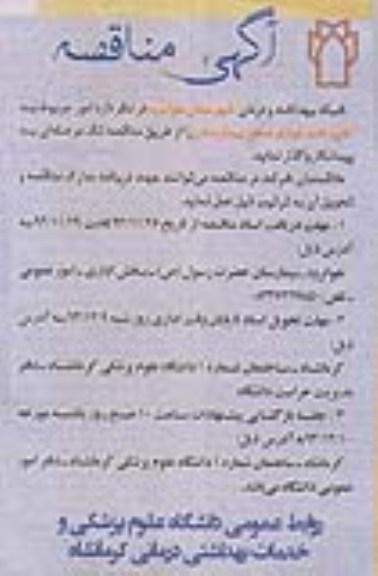 آگهی مناقصه
شبکه بهداشت و درمان در نظر دارد امور مربوط به
را از طریق مناقصه به
پیمانکار واگذار نماید.
متقاضیان شرکت در مناقصه می‌توانند جهت دریافت مدارک مناقصه و
تحویل آن به ترتیب ذیل عمل نمایند.
۱ - مهلت دریافت اسناد مناقصه از تاریخ لغایت به
آدرس ذیل:
جوانرود - بیمارستان حضرت رسول (ص) - بخش اداری - امور عمومی
- تلفن:
۲ - مهلت تحویل اسناد تا پایان وقت اداری روز شنبه به آدرس
ذیل:
کرمانشاه - ساختمان شماره ۱ دانشگاه علوم پزشکی کرمانشاه - دفتر
مدیریت حراست دانشگاه
۳ - جلسه بازگشایی پیشنهادات ساعت ۱۰ صبح روز یکشنبه مورخه
به آدرس ذیل:
کرمانشاه - ساختمان شماره ۱ دانشگاه علوم پزشکی کرمانشاه - دفتر امور
عمومی دانشگاه می‌باشد.
روابط عمومی دانشگاه علوم پزشکی و
خدمات بهداشتی درمانی کرمانشاه